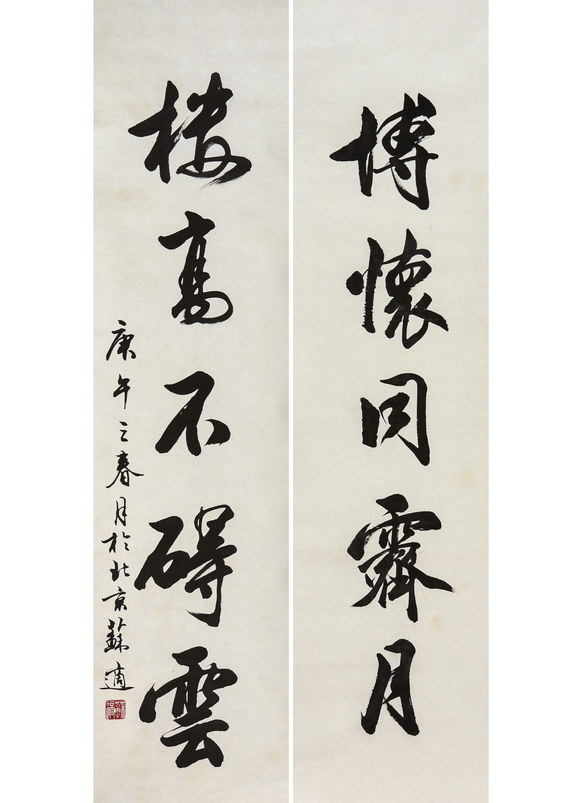 博懷同霽月
樓高不碍雲
庚午之春月於北京蘇適